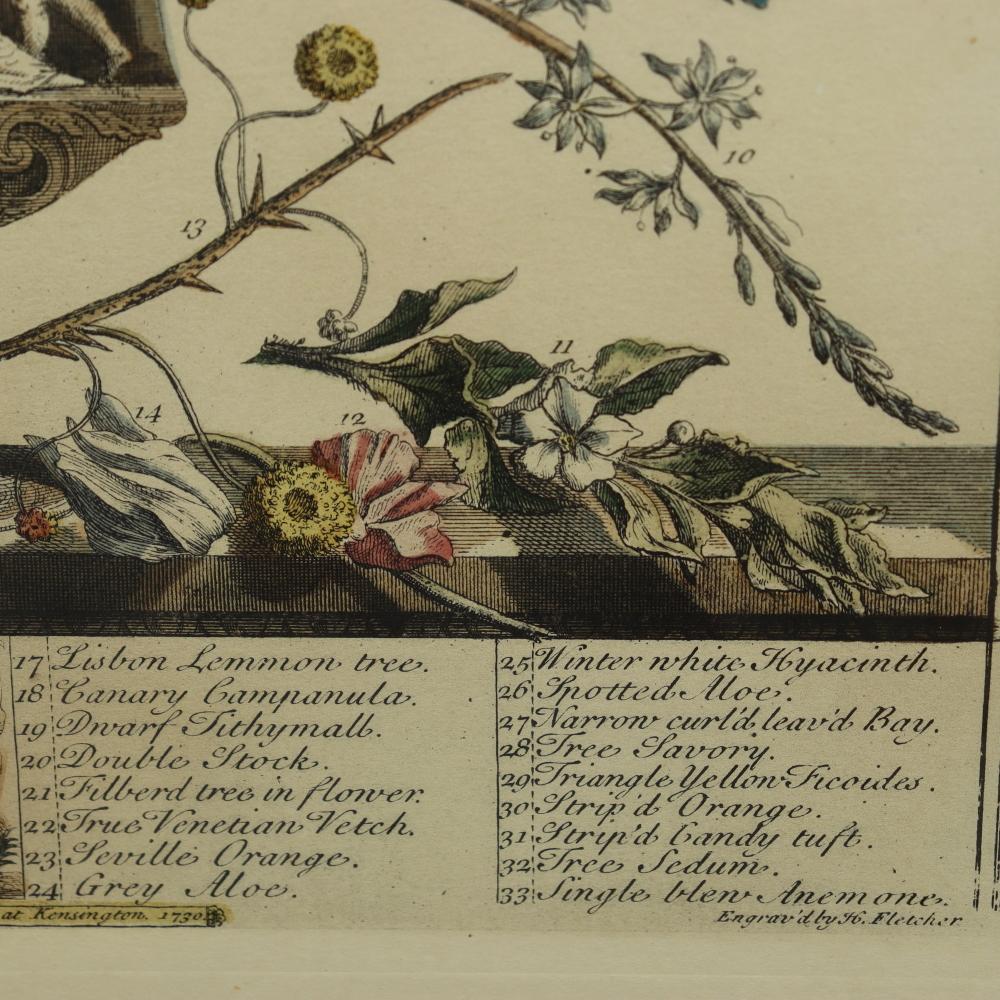 10
13
11
12
14
17 Lisbon Lemmon tree.
18 Canary Campanula.
19 Dwarf Tithymall.
20 Double Stock.
21 Filberd tree in flower.
22 True Venetian Vetch.
23 Seville Orange.
24 Grey Aloe.
25 Winter white Hyacinth.
26 Spotted Aloe.
27 Narrow curl'd leav'd Bay.
28 Tree Savory.
29 Triangle Yellow Ficoides.
30 Strip'd Orange.
31 Strip'd Candy tuft.
32 Tree Sedum.
33 Single blew Anemone.
at Kensington. 1730
Engrav'd by H. Fletcher